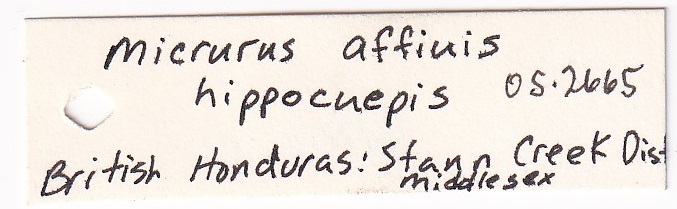 Micrurus affinis
hippocnepis OS.2665
British Honduras: Stann Creek Dist
Middlesex